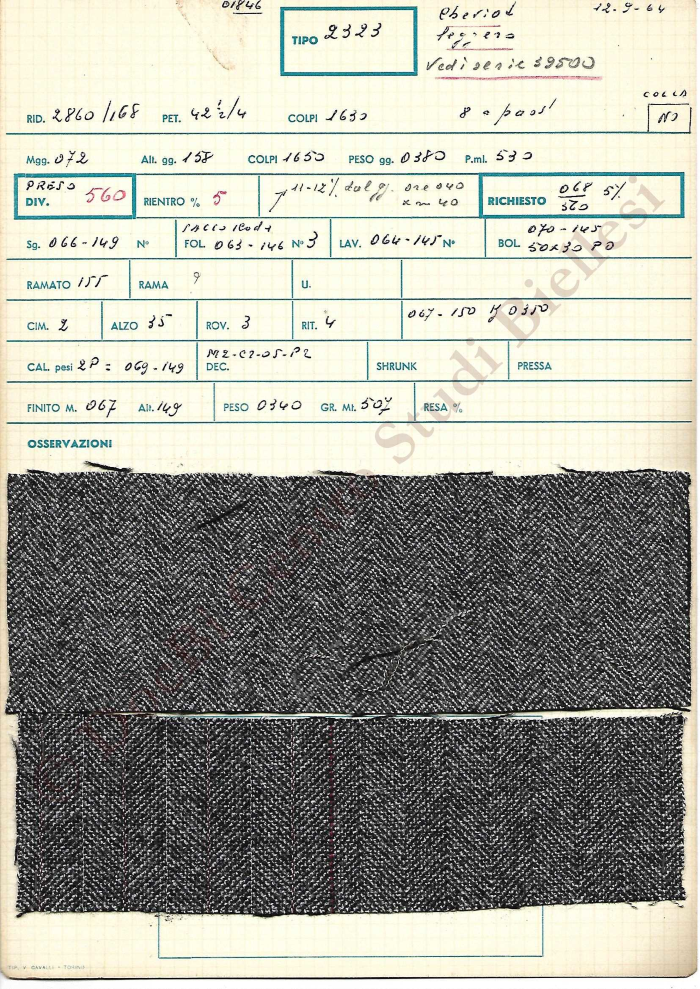 01846
12-9-64
TIPO 2323
Cheriot
leggero
Vedi serie 39500
COLLA
NO
RID. 2860/168 PET. 42 1/2/4 COLPI 1630 8 a pass
Mgg. 072 Alt. gg. 158 COLPI 1650 PESO gg. 0380 P.ml. 530
PRESO
DIV. 560
RIENTRO % 5
11-12% dal gg. ore 040
x m 40
RICHIESTO 068 5%
560
Sg. 066-149 N°
FOL. 063-146 N° 3
LAV. 064-145 N°
BOL 070-145
50x30 PD
RAMATO 155 RAMA 9 U.
CIM. 2 ALZO 35 ROV. 3 RIT. 4 067-150 0350
CAL. pesi 2P = 069-149
M2-C2-05-P2
DEC. SHRUNK PRESSA
FINITO M. 067 Alt. 149 PESO 0340 GR. Mt. 507 RESA %
OSSERVAZIONI
Centro Studi Biellesi
TIP. V. CAVALLI - TORINO